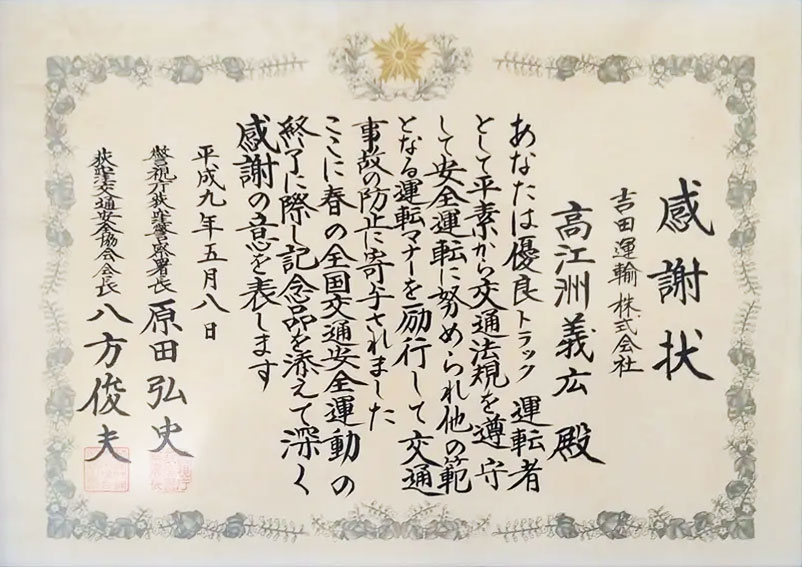 感謝状
吉田運輸株式会社
高江洲義広殿
あなたは優良トラック運転者
として平素から交通法規を遵守
して安全運転に努められ他の範
となる運転マナーを励行して交通
事故の防止に寄与されました
ここに春の全国交通安全運動の
終了に際し記念品を添えて深く
感謝の意を表します
平成九年五月八日
警視庁荻窪警察署長 原田弘史
荻窪交通安全協会会長 八方俊夫